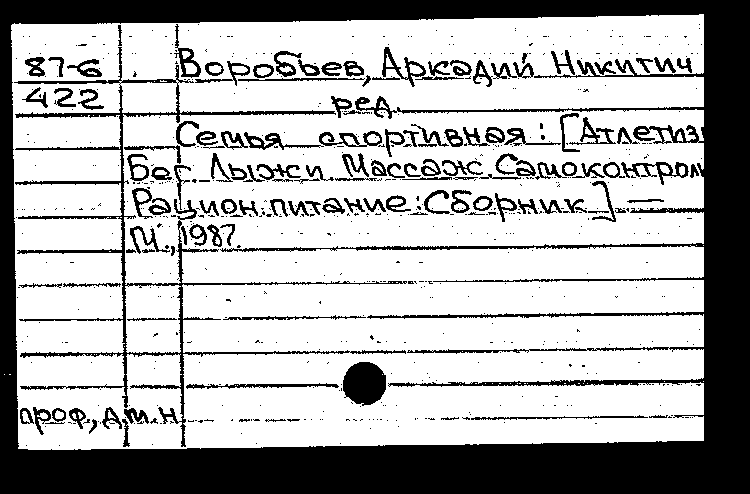 87-6 Воробьев, Аркадий Никитич
422 ред.
Семья спортивная: [Атлетиз
Бег. Лыжи. Массаж. Самоконтрол
Рацион. питание: Сборник] —
М., 1987.
проф., д.т.н.